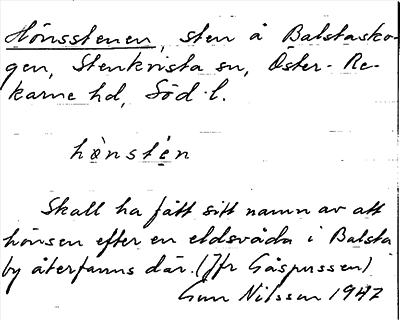 Hönsstenen, sten å Balstasko-
gen, Stenkvista sn, Öster-Re-
karne hd, Söd. l.
hȯnstén
Skall ha fått sitt namn av att
hönsen efter en eldsvåda i Balsta
by återfanns där. (Jfr Gåspussen)
Gun Nilsson 1947